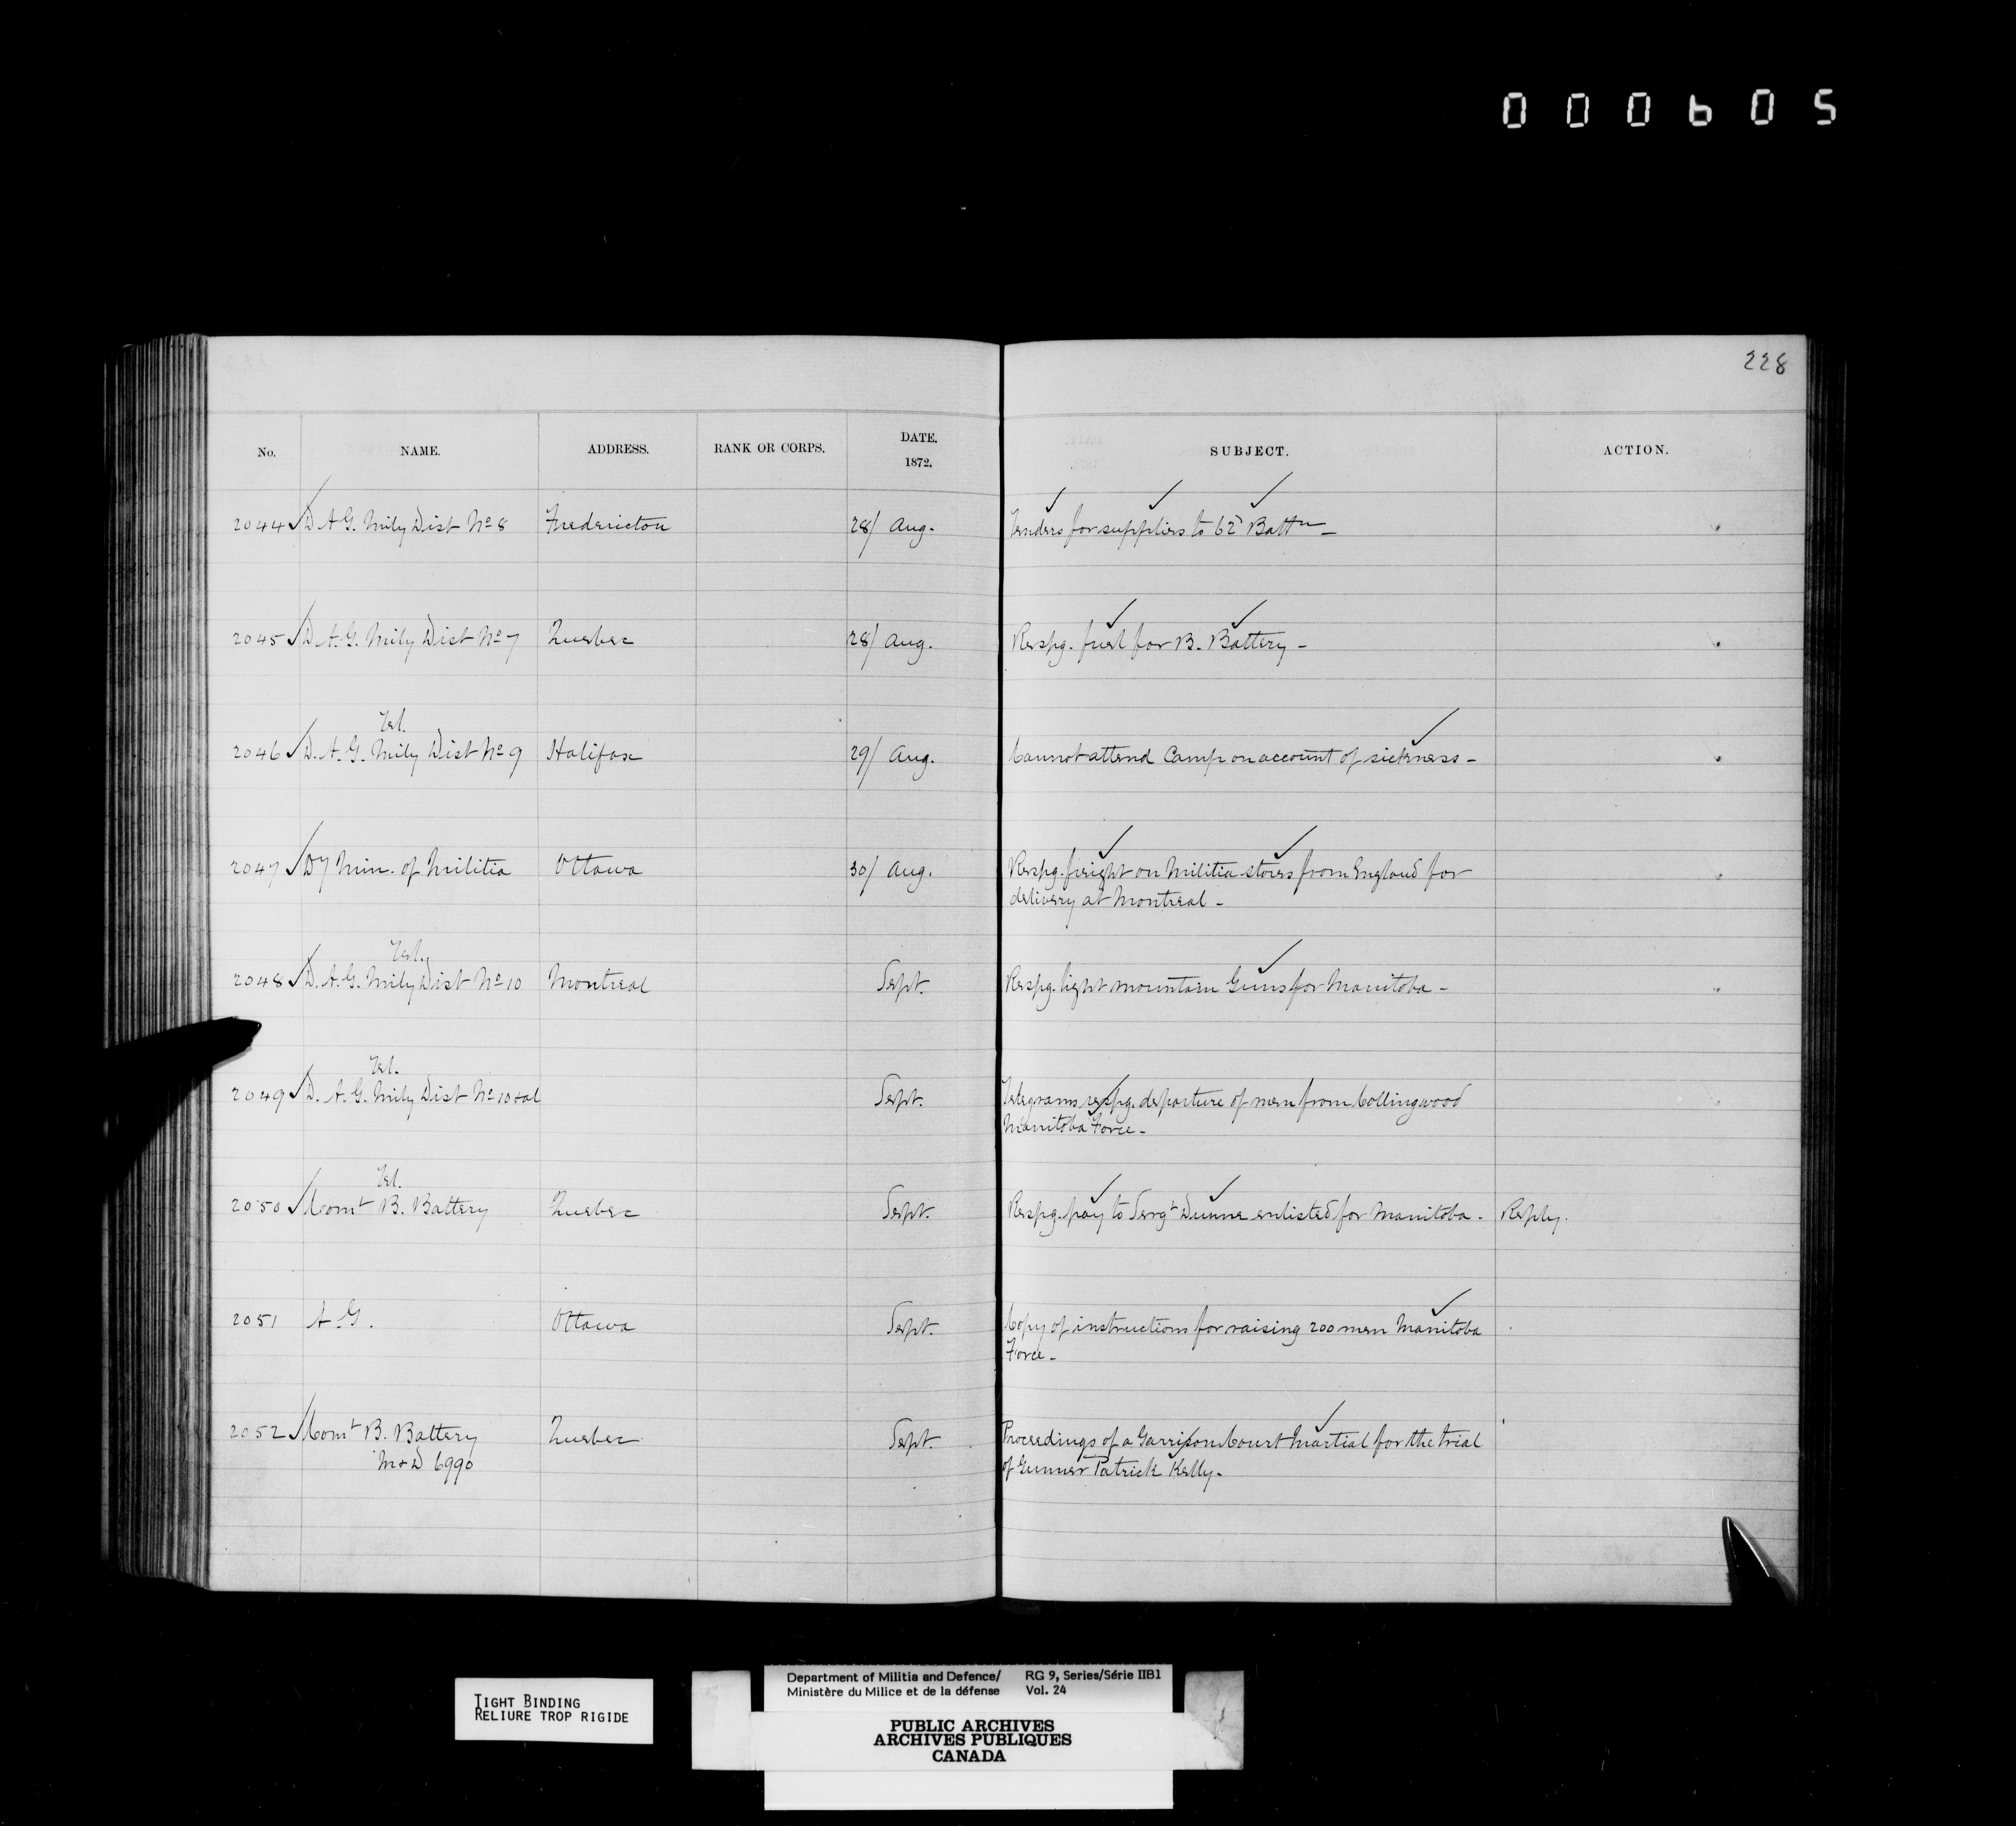 000605
228
No. NAME. ADDRESS. RANK OR CORPS. DATE. 1872. SUBJECT. ACTION.
2044 D A G. Mily Dist No 8 Fredericton 28/ Aug. Tenders for supplies to 62d Battn –
2045 D. A. G. Mily Dist No 7 Quebec 28/ Aug. Respg. fuel for B. Battery –
Tel.
2046 D. A. G. Mily Dist No 9 Halifax 29/ Aug. Cannot attend Camp on account of sickness –
2047 Dy Min. of Militia Ottawa 30/ Aug. Respg. freight on Militia stores from England for
delivery at Montreal –
Tel.
2048 D. A. G. Mily Dist No 10 Montreal Sept. Respg. light mountain Guns for Manitoba –
Tel.
2049 D. A. G. Mily Dist No 10 + al Sept. Telegrams respg. departure of men from Collingwood
Manitoba Force –
Tel.
2050 Comt B. Battery Quebec Sept. Respg. pay to Sergt Dunne enlisted for Manitoba – Reply.
2051 A. G. Ottawa Sept. Copy of instructions for raising 200 men Manitoba
Force –
2052 Comt B. Battery Quebec Sept. Proceedings of a Garrison Court Martial for the trial
M + D 6990 of Gunner Patrick Kelly –
TIGHT BINDING
RELIURE TROP RIGIDE
Department of Militia and Defence/ RG 9, Series/Série IIB1
Ministère du Milice et de la défense Vol. 24
PUBLIC ARCHIVES
ARCHIVES PUBLIQUES
CANADA